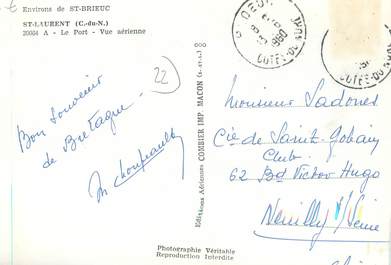 Environs de ST-BRIEUC
ST-LAURENT (C.-du-N.)
20004 A - Le Port - Vue aérienne
22
Bon Souvenir
de Bretagne
Editions Aériennes COMBIER IMP. MACON (S.-et-L.)
Photographie Véritable
Reproduction Interdite
1960
COTES-DU-NORD
Monsieur Sadones
Cie de Saint Gobain
Club
62 Bd Victor Hugo
Neuilly s/ Seine